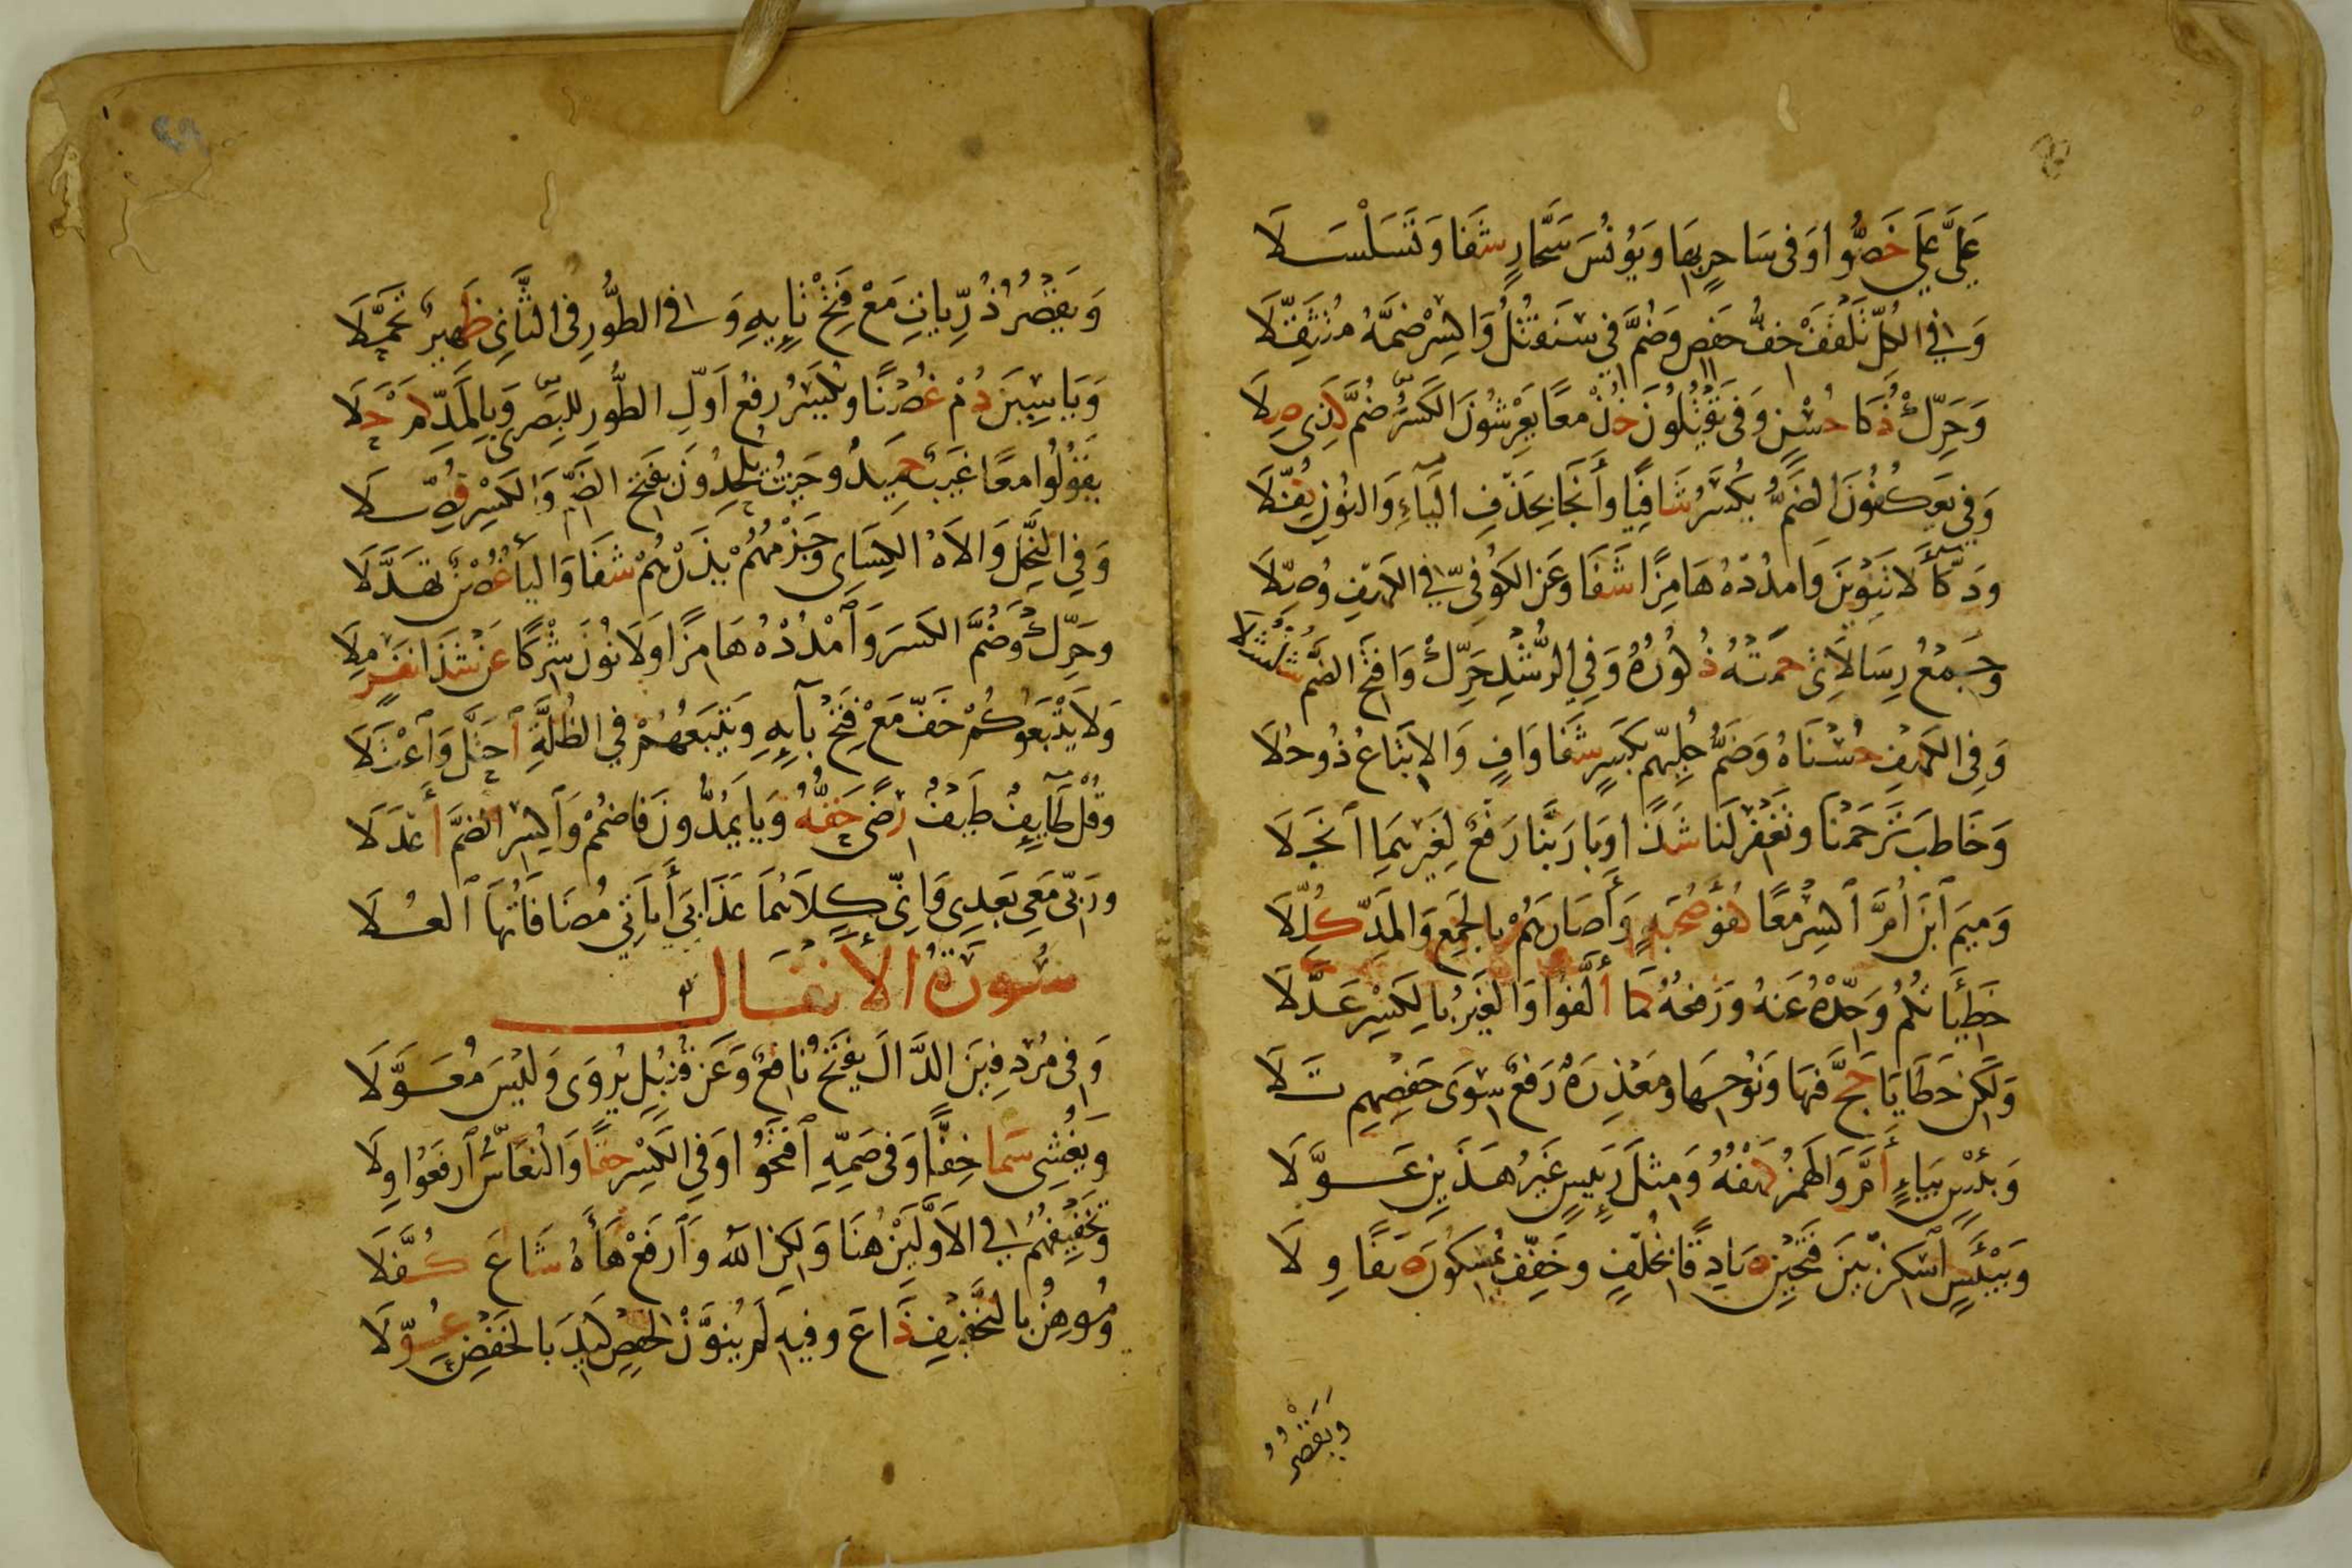 عَلَيَّ عَلَى خَصُّوا وَفِي سَاحِرٍ بِهَا وَيُونُسَ سَحَّارٍ شَفَا وَتَسَلْسَلَا
وَفِي الكُلِّ تَلْقَفْ خِفُّ حَفْصٍ وَضُمَّ فِي سَنَقْتُلُ وَاكْسِرْ ضَمَّهُ مُتَثَقِّلَا
وَحَرِّكْ ذُكَا حُسْنٍ وَفِي يَقْتُلُونَ خُذْ مَعًا يَعْرِشُونَ الكَسْرُ ضُمَّ كَذِي صِلَا
وَفِي يَعْكُفُونَ الضَمُّ يُكْسَرُ شَافِيًا وَأَنْجَا بِحَذْفِ اليَاءِ وَالنُونِ كُفِّلَا
وَدَكَّاءَ لَا تَنْوِينَ وَامْدُدْهُ هَامِزًا شَفَا وَعَنِ الكُوفِيِّ فِي الكَهْفِ وُصِّلَا
وَجَمْعُ رِسَالَاتِي حَمَتْهُ ذُكُورُهُ وَفِي الرُّشْدِ حَرِّكْ وَافْتَحِ الضَّمَّ شُلْشُلَا
وَفِي الكَهْفِ حُسْنَاهُ وَضَمُّ حُلِيِّهِمْ بِكَسْرٍ شَفَا وَافٍ وَالِاتْبَاعُ ذُو حُلَا
وَخَاطَبَ تَرْحَمْنَا وَتَغْفِرْ لَنَا شَذًا وَبَا رَبَّنَا رَفْعٌ لِغَيْرِهِمَا انْجَلَا
وَمِيمَ ابْنَ أُمَّ اكْسِرْ مَعًا كُفْؤَ صُحْبَةٍ وَآصَارَهُمْ بِالجَمْعِ وَالمَدِّ كُلِّلَا
خَطِيئَاتُكُمْ وَحِّدْهُ عَنْهُ وَرَفْعُهُ كَمَا أَلَّفُوا وَالغَيْرُ بِالكَسْرِ عَدَّلَا
وَلَكِنْ خَطَايَا حَجَّ فِيهَا وَنُوحِهَا وَمَعْذِرَةً رَفْعٌ سِوَى حَفْصِهِمْ تَلَا
وَبِئْسٍ بِيَاءٍ أَمَّ وَالهَمْزُ كَهْفُهُ وَمِثْلَ رَئِيسٍ غَيْرُ هَذَيْنِ عَوَّلَا
وَبَيْئَسٍ اسْكِنْ بَيْنَ فَتْحَيْنِ صَادِقًا بِخُلْفٍ وَخَفِّفْ يُمْسِكُونَ صَفًا وِلَا
وَيَقْصُرُ
وَيَقْصُرُ ذُرِّيَّاتِ مَعْ فَتْحِ تَائِهِ وَفِي الطُّورِ فِي الثَّانِي ظَهِيرٌ تَحَمَّلَا
وَيَاسِينَ دُمْ غُصْنًا وَيُكْسَرُ رَفْعُ أَوَّلِ الطُّورِ لِلْبَصْرِي وَبِالمَدِّ كَمْ حَلَا
يَقُولُوا مَعًا غَيْبٌ حَمِيدٌ وَحَيْثُ يُلْحِدُونَ بِفَتْحِ الضَّمِّ وَالكَسْرِ فُصِّلَا
وَفِي النَّحْلِ وَالَاهُ الكِسَائِي وَجَزْمُهُمْ يَذَرْهُمْ شَفَا وَاليَاءُ غُصْنٌ تَهَدَّلَا
وَحَرِّكْ وَضُمَّ الكَسْرَ وَامْدُدْهُ هَامِزًا وَلَا نُونَ شِرْكًا عَنْ شَذَا نَفَرٍ مِلَا
وَلَا يَتْبَعُوكُمْ خَفَّ مَعْ فَتْحِ بَائِهِ وَيَتْبَعُهُمْ فِي الظُّلَّةِ احْتَلَّ وَاعْتَلَا
وَقُلْ طَائِفٌ طَيْفٌ رِضًى حَقُّهُ وَيَا يَمُدُّونَ فَاضْمُمْ وَاكْسِرِ الضَّمَّ أَعْدَلَا
وَرَبِّي مَعِي بَعْدِي وَإِنِّي كِلَاهُمَا عَذَابِي آيَاتِي مُضَافَاتُهَا العُلَا
سُورَةُ الأَنْفَالِ
وَفِي مُرْدِفِينَ الدَّالَ يَفْتَحُ نَافِعٌ وَعَنْ قُنْبُلٍ يُرْوَى وَلَيْسَ مُعَوَّلَا
وَيُغْشِي سَمَا خِفًّا وَفِي ضَمِّهِ افْتَحُوا وَفِي الكَسْرِ حَقًّا وَالنُّعَاسَ ارْفَعُوا وِلَا
وَتَخْفِيفُهُمْ فِي الأَوَّلَيْنِ هُنَا وَلَكِنِ اللهُ وَارْفَعْ هَاءَهُ شَاعَ كُفَّلَا
وَمُوهِنُ بِالتَّخْفِيفِ ذَاعَ وَفِيهِ لَمْ يُنَوَّنْ لِحَفْصٍ كَيْدَ بِالخَفْضِ عَوَّلَا